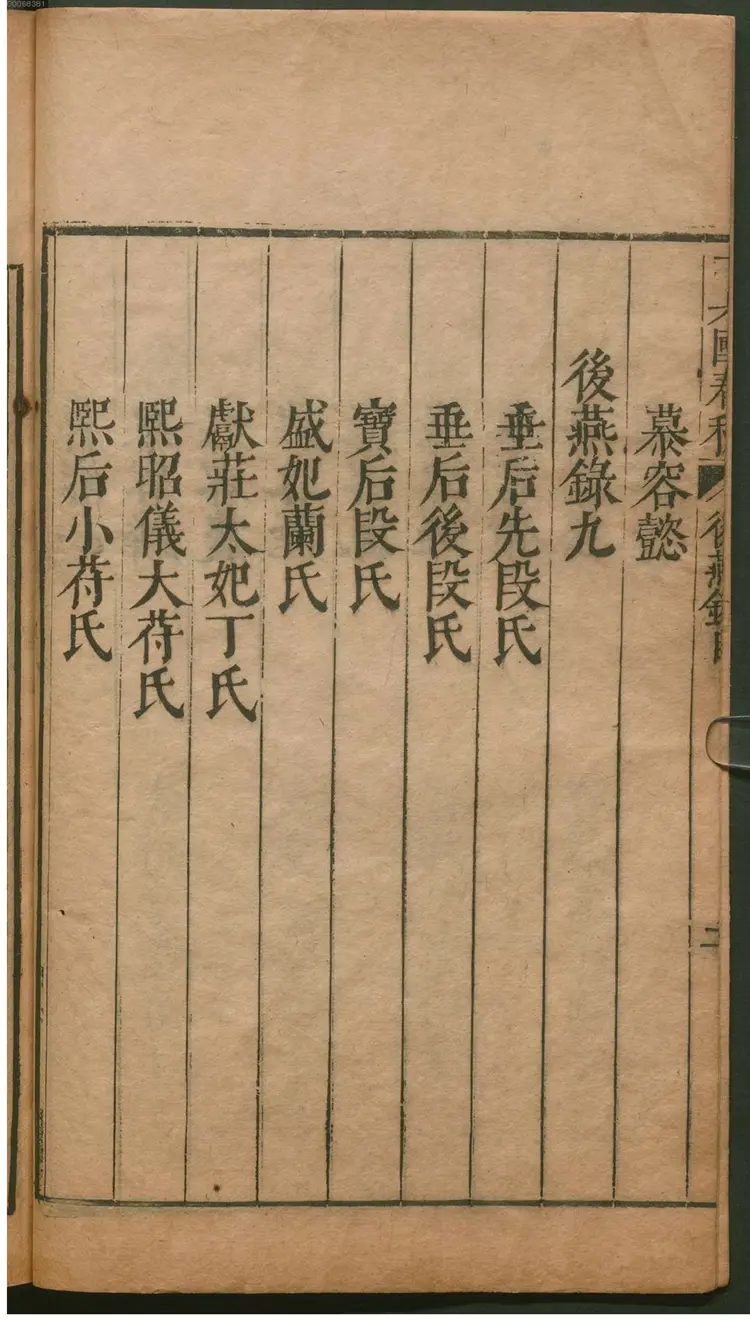 慕容懿
後燕錄九
垂后先段氏
垂后後段氏
寶后段氏
盛妃蘭氏
獻莊太妃丁氏
熙昭儀大苻氏
熙后小苻氏
國春秋
後燕錄目
二
00068381